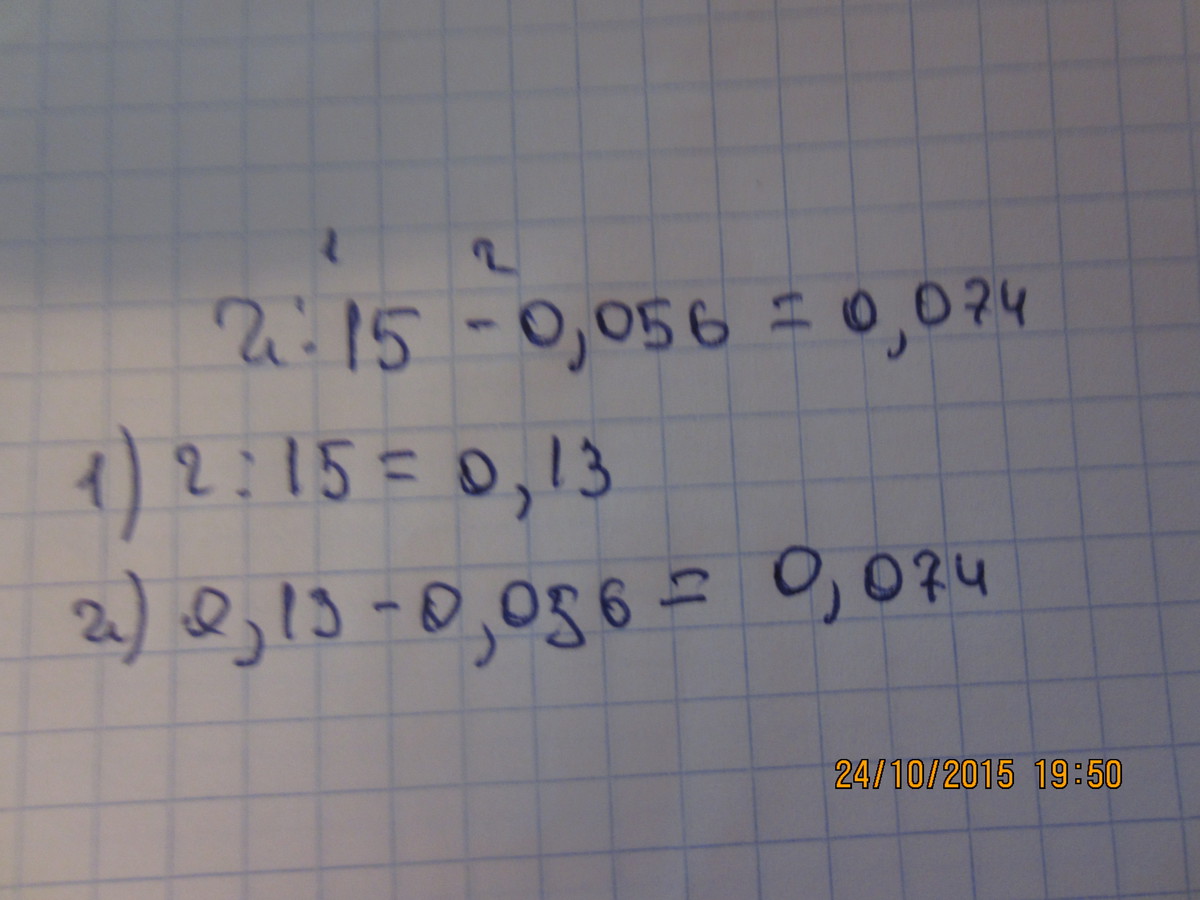 1 2
2:15 - 0,056 = 0,074
1) 2:15 = 0,13
2) 0,13 - 0,056 = 0,074
24/10/2015 19:50